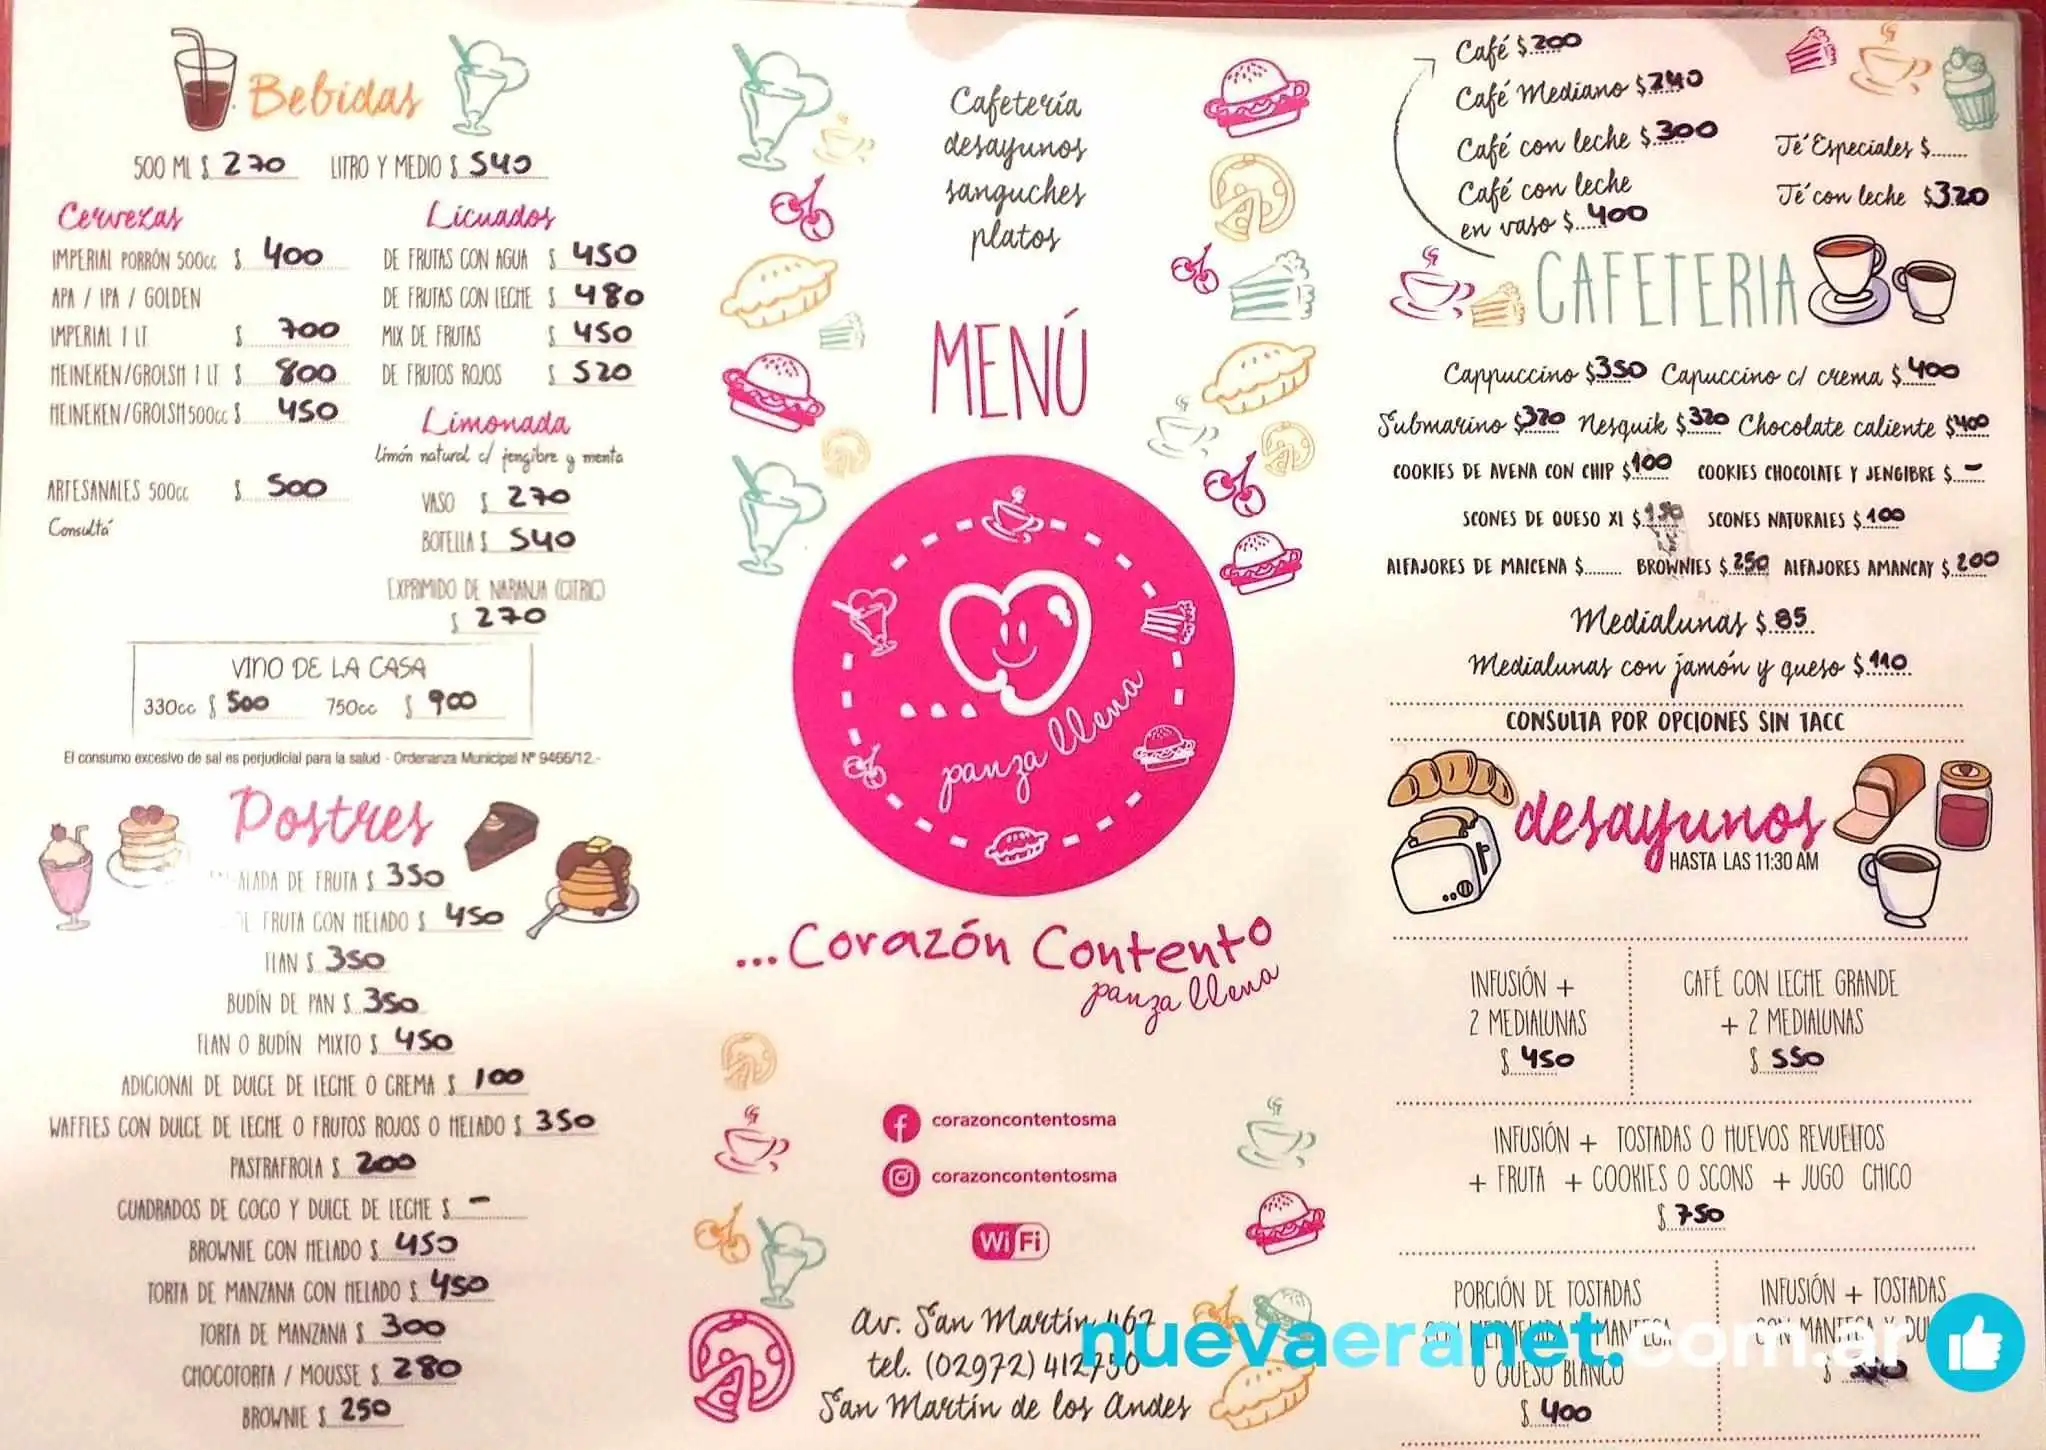 Bebidas
500 ML $ 270 LITRO Y MEDIO $ 540
Cervezas
IMPERIAL PORRÓN 500cc $ 400
APA / IPA / GOLDEN
IMPERIAL 1 LT $ 700
HEINEKEN/GROLSH 1 LT $ 800
HEINEKEN/GROLSH 500cc $ 450
ARTESANALES 500cc $ 500
Consultá
Licuados
DE FRUTAS CON AGUA $ 450
DE FRUTAS CON LECHE $ 480
MIX DE FRUTAS $ 450
DE FRUTOS ROJOS $ 520
Limonada
limón natural c/ jengibre y menta
VASO $ 270
BOTELLA $ 540
EXPRIMIDO DE NARANJA (CITRIC)
$ 270
VINO DE LA CASA
330cc $ 500 750cc $ 900
El consumo excesivo de sal es perjudicial para la salud - Ordenanza Municipal Nº 9466/12.-
Postres
ALADA DE FRUTA $ 350
DE FRUTA CON HELADO $ 450
FLAN $ 350
BUDÍN DE PAN $ 350
FLAN O BUDÍN MIXTO $ 450
ADICIONAL DE DULCE DE LECHE O CREMA $ 100
WAFFLES CON DULCE DE LECHE O FRUTOS ROJOS O HELADO $ 350
PASTRAFROLA $ 200
CUADRADOS DE COCO Y DULCE DE LECHE $ -
BROWNIE CON HELADO $ 450
TORTA DE MANZANA CON HELADO $ 450
TORTA DE MANZANA $ 300
CHOCOTORTA / MOUSSE $ 280
BROWNIE $ 250
Cafetería
desayunos
sanguches
platos
MENÚ
panza llena
...Corazón Contento
panza llena
corazoncontentosma
corazoncontentosma
WiFi
Av. San Martín 467
tel. (02972) 412750
San Martín de los Andes
Café $ 200
Café Mediano $ 240
Café con leche $ 300
Café con leche
en vaso $ 400
Té Especiales $......
Té con leche $ 320
CAFETERIA
Cappuccino $ 350 Capuccino c/ crema $ 400
Submarino $ 320 Nesquik $ 320 Chocolate caliente $ 400
COOKIES DE AVENA CON CHIP $ 100 COOKIES CHOCOLATE Y JENGIBRE $ -
SCONES DE QUESO XL $ 150 SCONES NATURALES $ 100
ALFAJORES DE MAICENA $........ BROWNIES $ 250 ALFAJORES AMANCAY $ 200
Medialunas $ 85
Medialunas con jamón y queso $ 110
CONSULTA POR OPCIONES SIN TACC
desayunos
HASTA LAS 11:30 AM
INFUSIÓN +
2 MEDIALUNAS
$ 450
CAFÉ CON LECHE GRANDE
+ 2 MEDIALUNAS
$ 550
INFUSIÓN + TOSTADAS O HUEVOS REVUELTOS
+ FRUTA + COOKIES O SCONS + JUGO CHICO
$ 750
PORCIÓN DE TOSTADAS
CON MERMELADA MANTECA
O QUESO BLANCO
$ 400
INFUSIÓN + TOSTADAS
CON MANTECA Y DU
$
nuevaeranet.com.ar